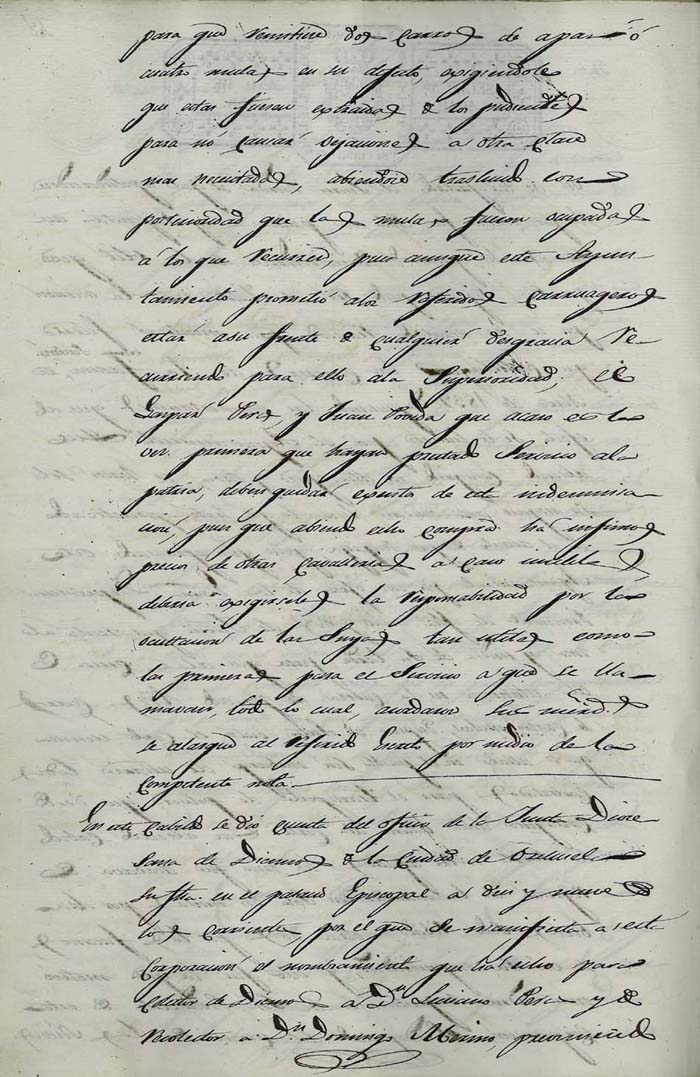 para que remitiese dos carros de a par ó
cuatro mulas en su defecto, exigiendole
que estas fuesen extraidas de los pudientes
para no causar vejaciones a otra clase
mas necesitada, abiendose traslucido con
posterioridad que las mulas fueron ocupadas
á los que recurren, pues aunque este Ayun
tamiento prometió alos referidos carruageros
estar asu frente de cualquier desgracia re
curriendo para ello ala Superioridad, el
Gaspar Peres, y Juan que acaso es la
ves primera que hayan prestado Servicio ala
patria, deben quedar esentos de este indemnisa
cion, pues que abiendo echo comprar há infimos
precios de otras cavallerias a caso inutiles,
deberia exigirseles la responsabilidad por la
ocultacion de las Suyas tan utiles como
las primeras para el Servicio a que se lla
mavan, todo lo cual, acordaron Sus mercedes
se alargue al referido Escrito por medio de la
competente nota.
En este Cabildo se dio cuenta del oficio de la Junta Dioce
sana de Diesmos de la Ciudad de Orihuela
su fha. en el palacio Episcopal a dies y nueve de
los corrientes, por el que se manifiesta a esta
Corporacion el nombramiento que há echo para
Colector de Diesmos a Dn. Peres y de
Recolector a Dn. Domingo Merino, previniendo